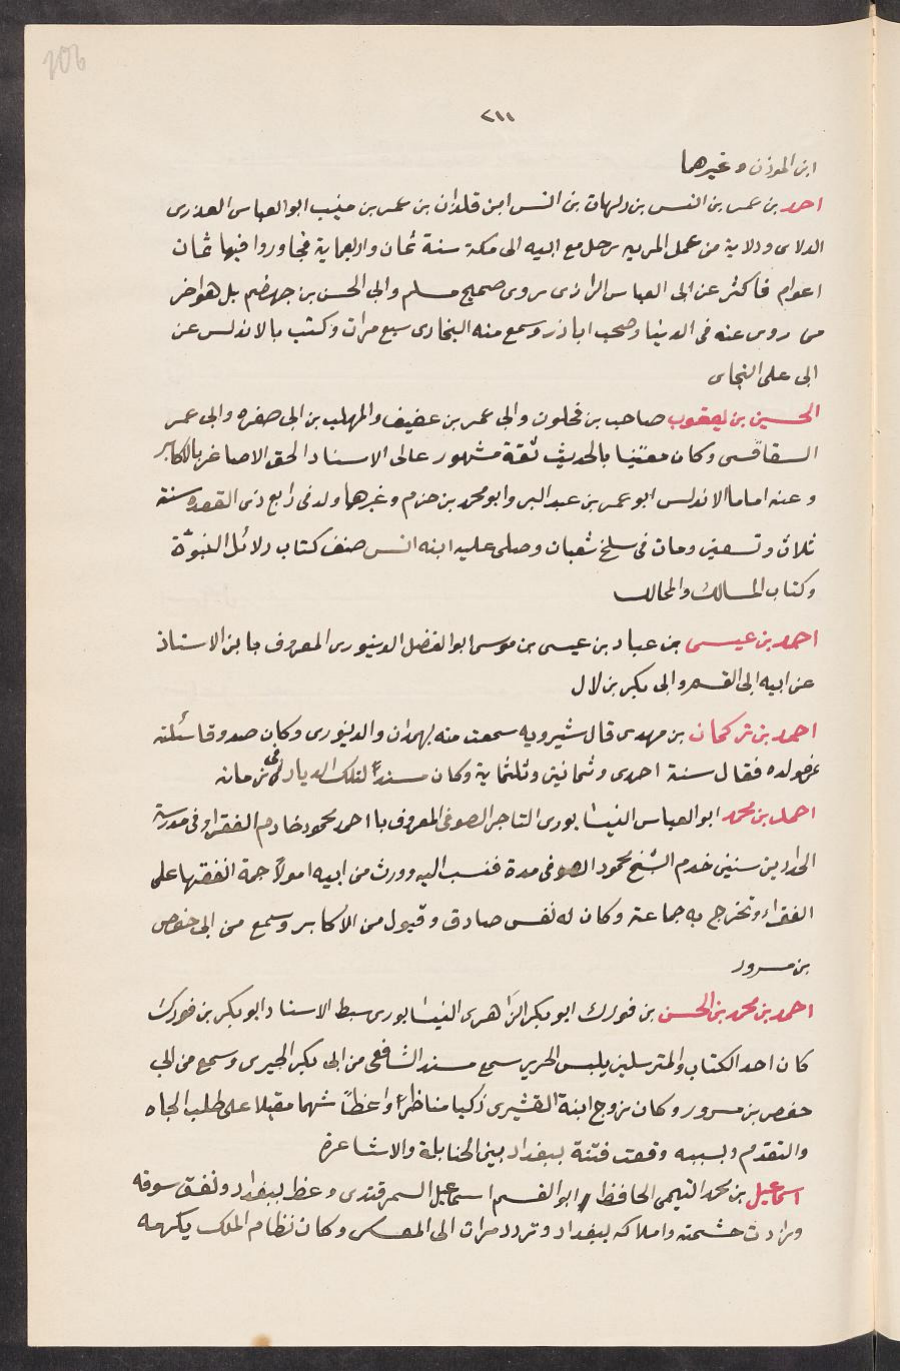 206
٢١١
ابن المؤذن وغيرهما
احمد بن عمر بن النس بن دلهاث بن انس ابن قلذان بن عمر بن منيب ابو العباس العذرى
الدلاى ودلاية من عمل المريه رحل مع ابيه الى مكة سنة ثمان واربعماية فجاوروا فيها ثمان
اعوام فاكثر عن ابى العباس الرازى روى صحيح مسلم وابى الحسن بن جهضم بل هو اخر
من روى عنه فى الدنيا وصحب اباذر وسمع منه البخارى سبع مرات وكتب بالاندلس عن
ابى على النجاى
الحسين بن يعقوب صاحب بن فحلون وابى عمر بن عفيف والمهلب بن ابى صفره وابى عمر
السفاقسى وكان معتنيا بالحديث ثقة مشهور عالى الاسناد الحق الاصاغر بالاكابر
وعنه اماما الاندلس ابو عمر بن عبد البر وابو محمد بن حزم وغيرهما ولد فى رابع ذى القعده سنة
ثلاث وتسعين ومات فى سلخ شعبان وصلى عليه ابنه انس صنف كتاب دلائل النبوّة
وكتاب المسالك والممالك
احمد بن عيسى بن عباد بن عيسى بن موسى ابو الفضل الدينورى المعروف بابن الاستاذ
عن ابيه ابى القسم وابى بكر بن لال
احمد بن تركمان بن مهدى قال شيرويه سمعت منه بهمدان والدينورى وكان صدوقا سئلته
عن مولده فقال سنة احدى وثمانين وثلثماية وكان مسندًا لتلك الديار فى زمانه
احمد بن محمد ابو العباس النيسابورى التاجر الصوفى المعروف با احمد محمود خادم الفقراء فى مدرسة
الحدادين سنين خدم الشيخ محمود الصوفى مدة فنسب اليه وورث من ابيه امولاً جمة انفقها على
الفقراء وتخرج به جماعة وكان له نفس صادق وقبول من الاكابر وسمع من ابى حفص
بن مسرور
احمد بن محمد بن الحسن بن فورك ابو بكر الزاهرى النيسابورى سبط الاستاد ابو بكر بن فورك
كان احد الكتاب والمترسلين يلبس الحرير سمع مسند الشافعى من ابى بكر الحيرى وسمع من ابى
حفص بن مسرور وكان زوج ابنة القشيرى زكيا مناظراً واعظاً شهما مقبلا على طلب الجاه
والتقدم وبسببه وقعت فتنة ببغداد بين الحنابلة والاشاعرة
اسماعيل بن محمد التيمى الحافظ ابو القسم اسماعيل السمرقندى وعظ ببغداد ونفق سوقه
وزادت حشمته واملاكه ببغداد وتردد مرات الى المعسكر وكان نظام الملك يكرمه